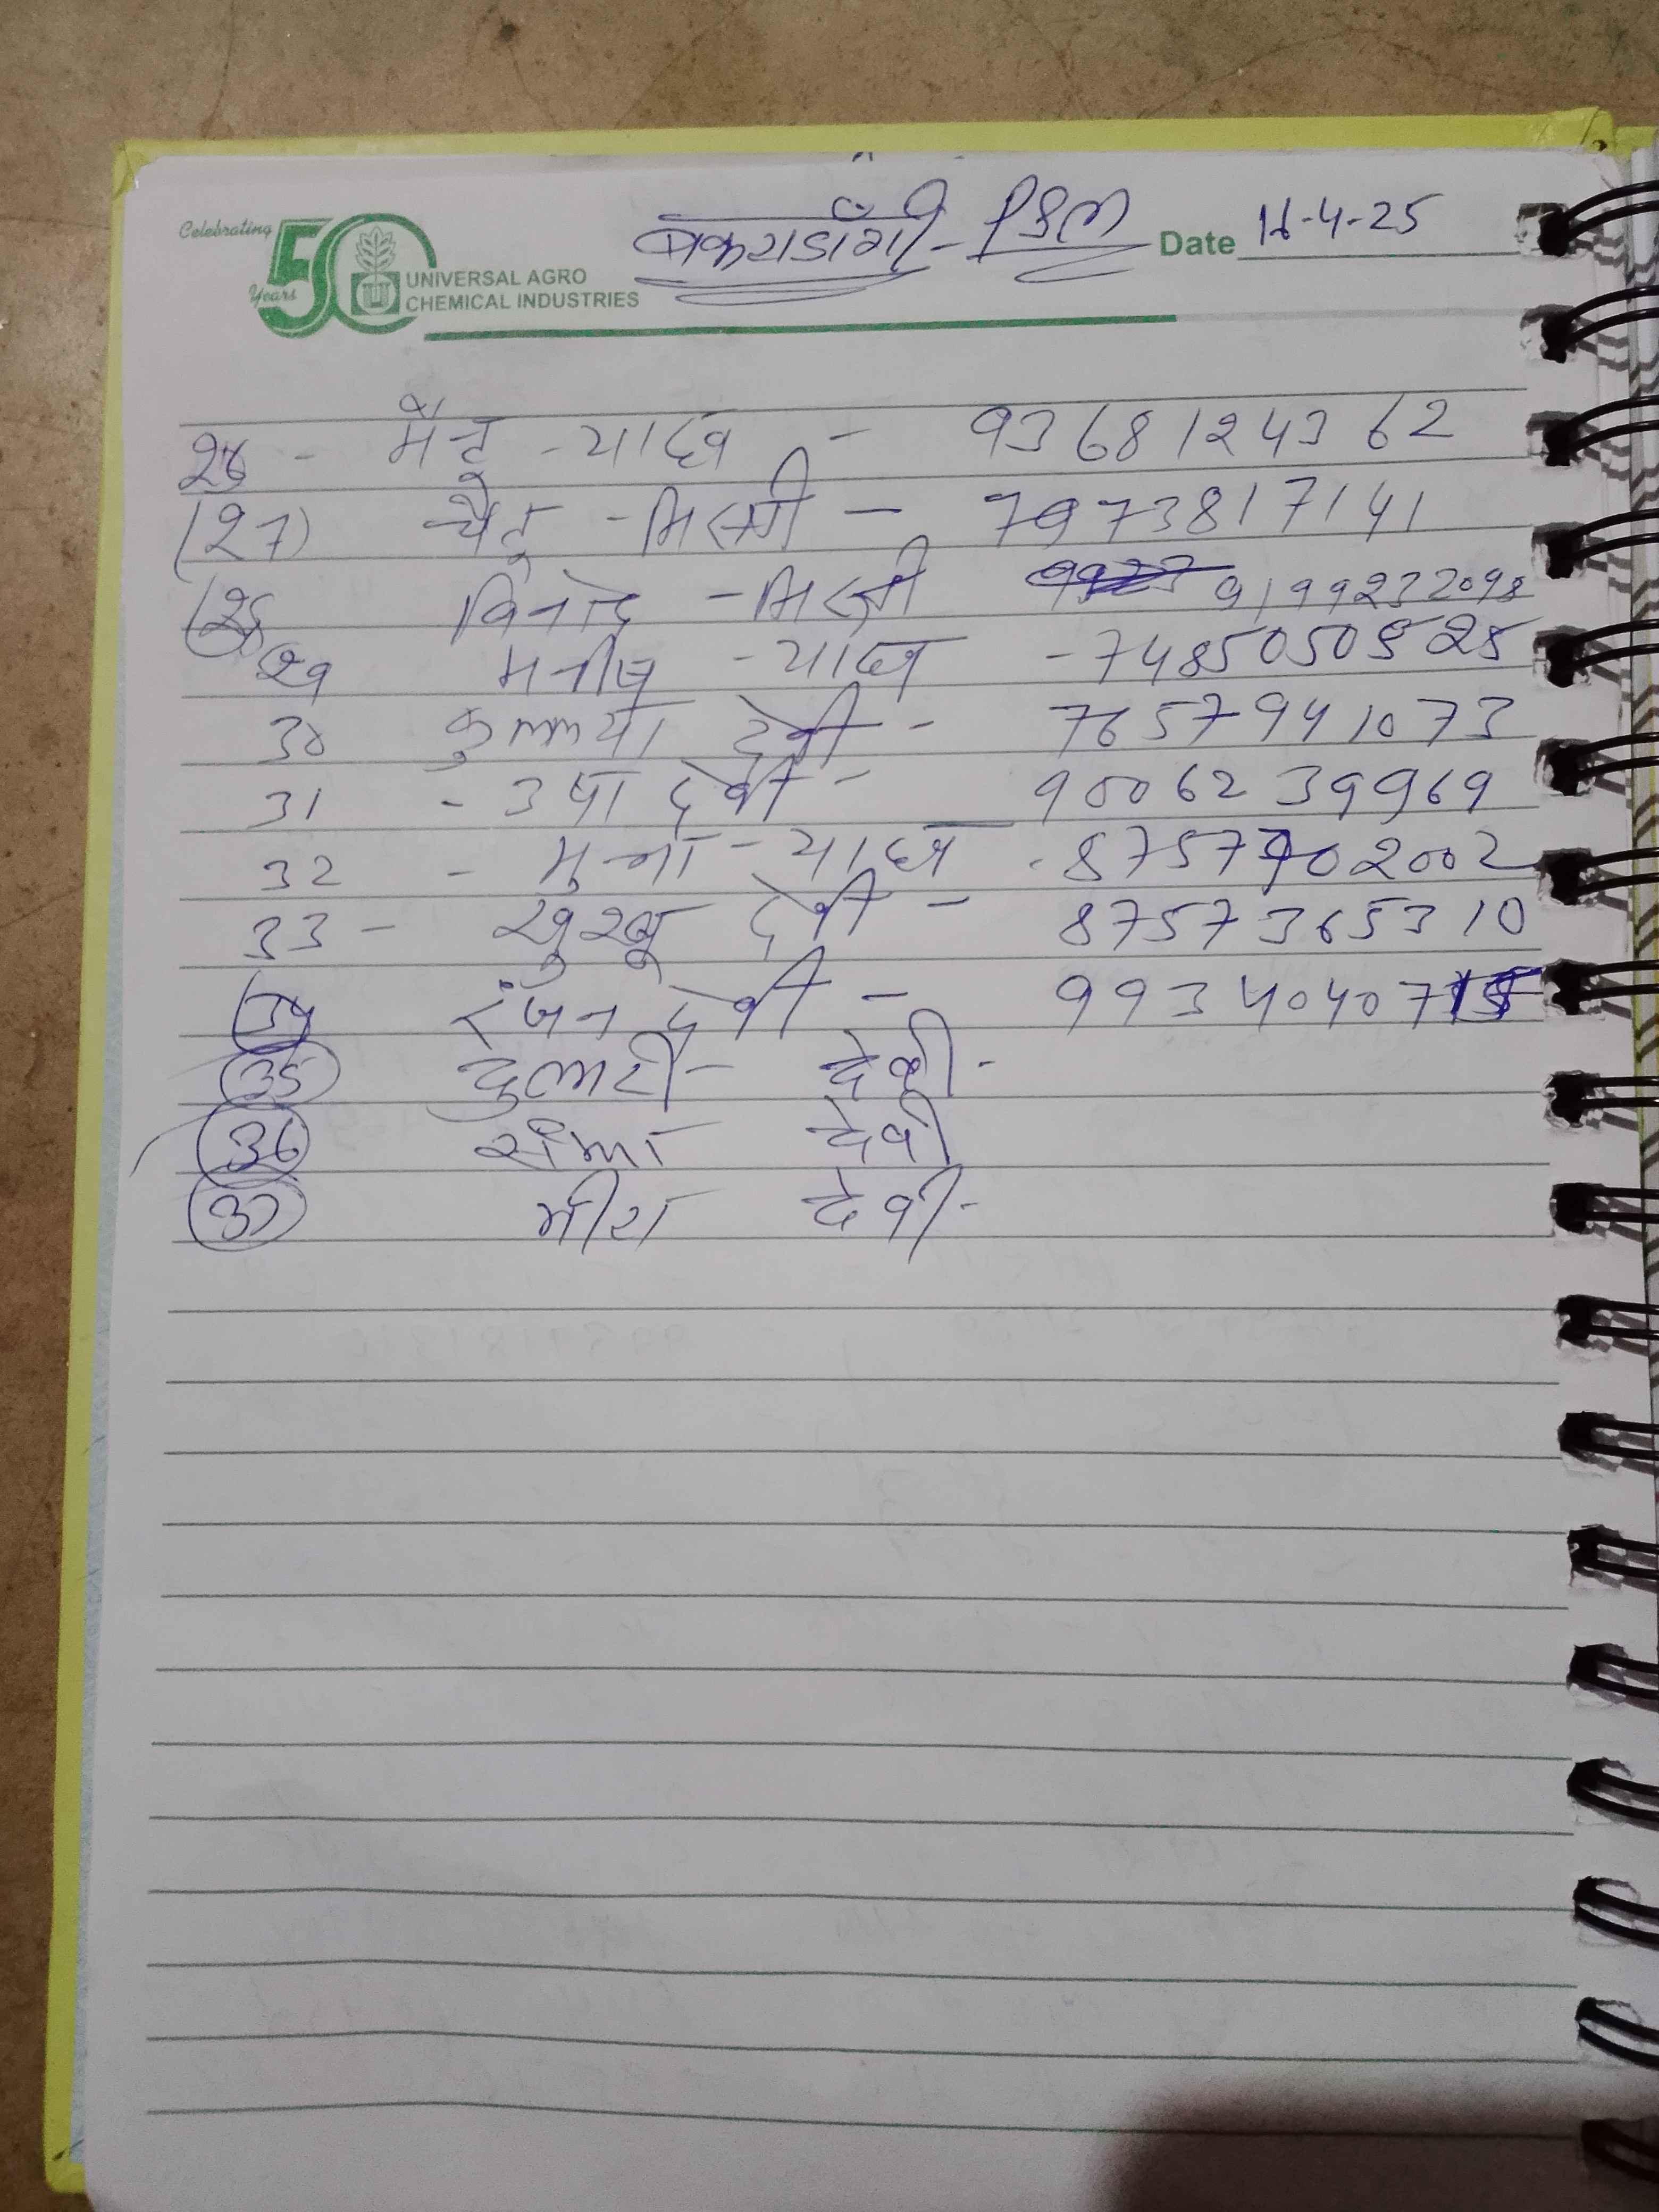 Celebrating
50
Years
UNIVERSAL AGRO
CHEMICAL INDUSTRIES
बकराडाँगी -
Date 16-4-25
26 - मैनू - यादव - 9368124362
(27) चैतू - मिस्त्री - 7973817141
(28 विनोद - मिस्त्री 9199232098
29 मनीष - यादव - 7485050528
30 देवी - 7657941073
31 - उषा देवी - 9006239969
32 - मुन्ना - यादव - 8757702002
33 - सुखू देवी - 8757365310
34 रंजन देवी - 9934040715
35 दुलारी - देवी -
36 देवी
37 मीरा देवी -